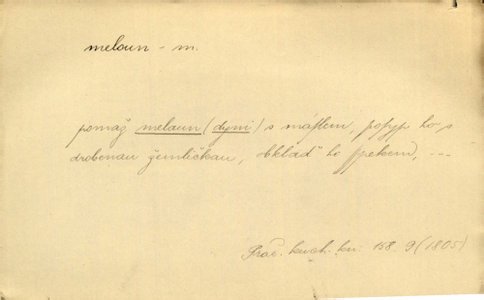 melaun – m.
pomaž melaun (dyni) s máslem, posyp ho s
drobenau žemličkau, obklaď ho sspekem, ---
Prac. kuch. kn. 158. 9 (1805)